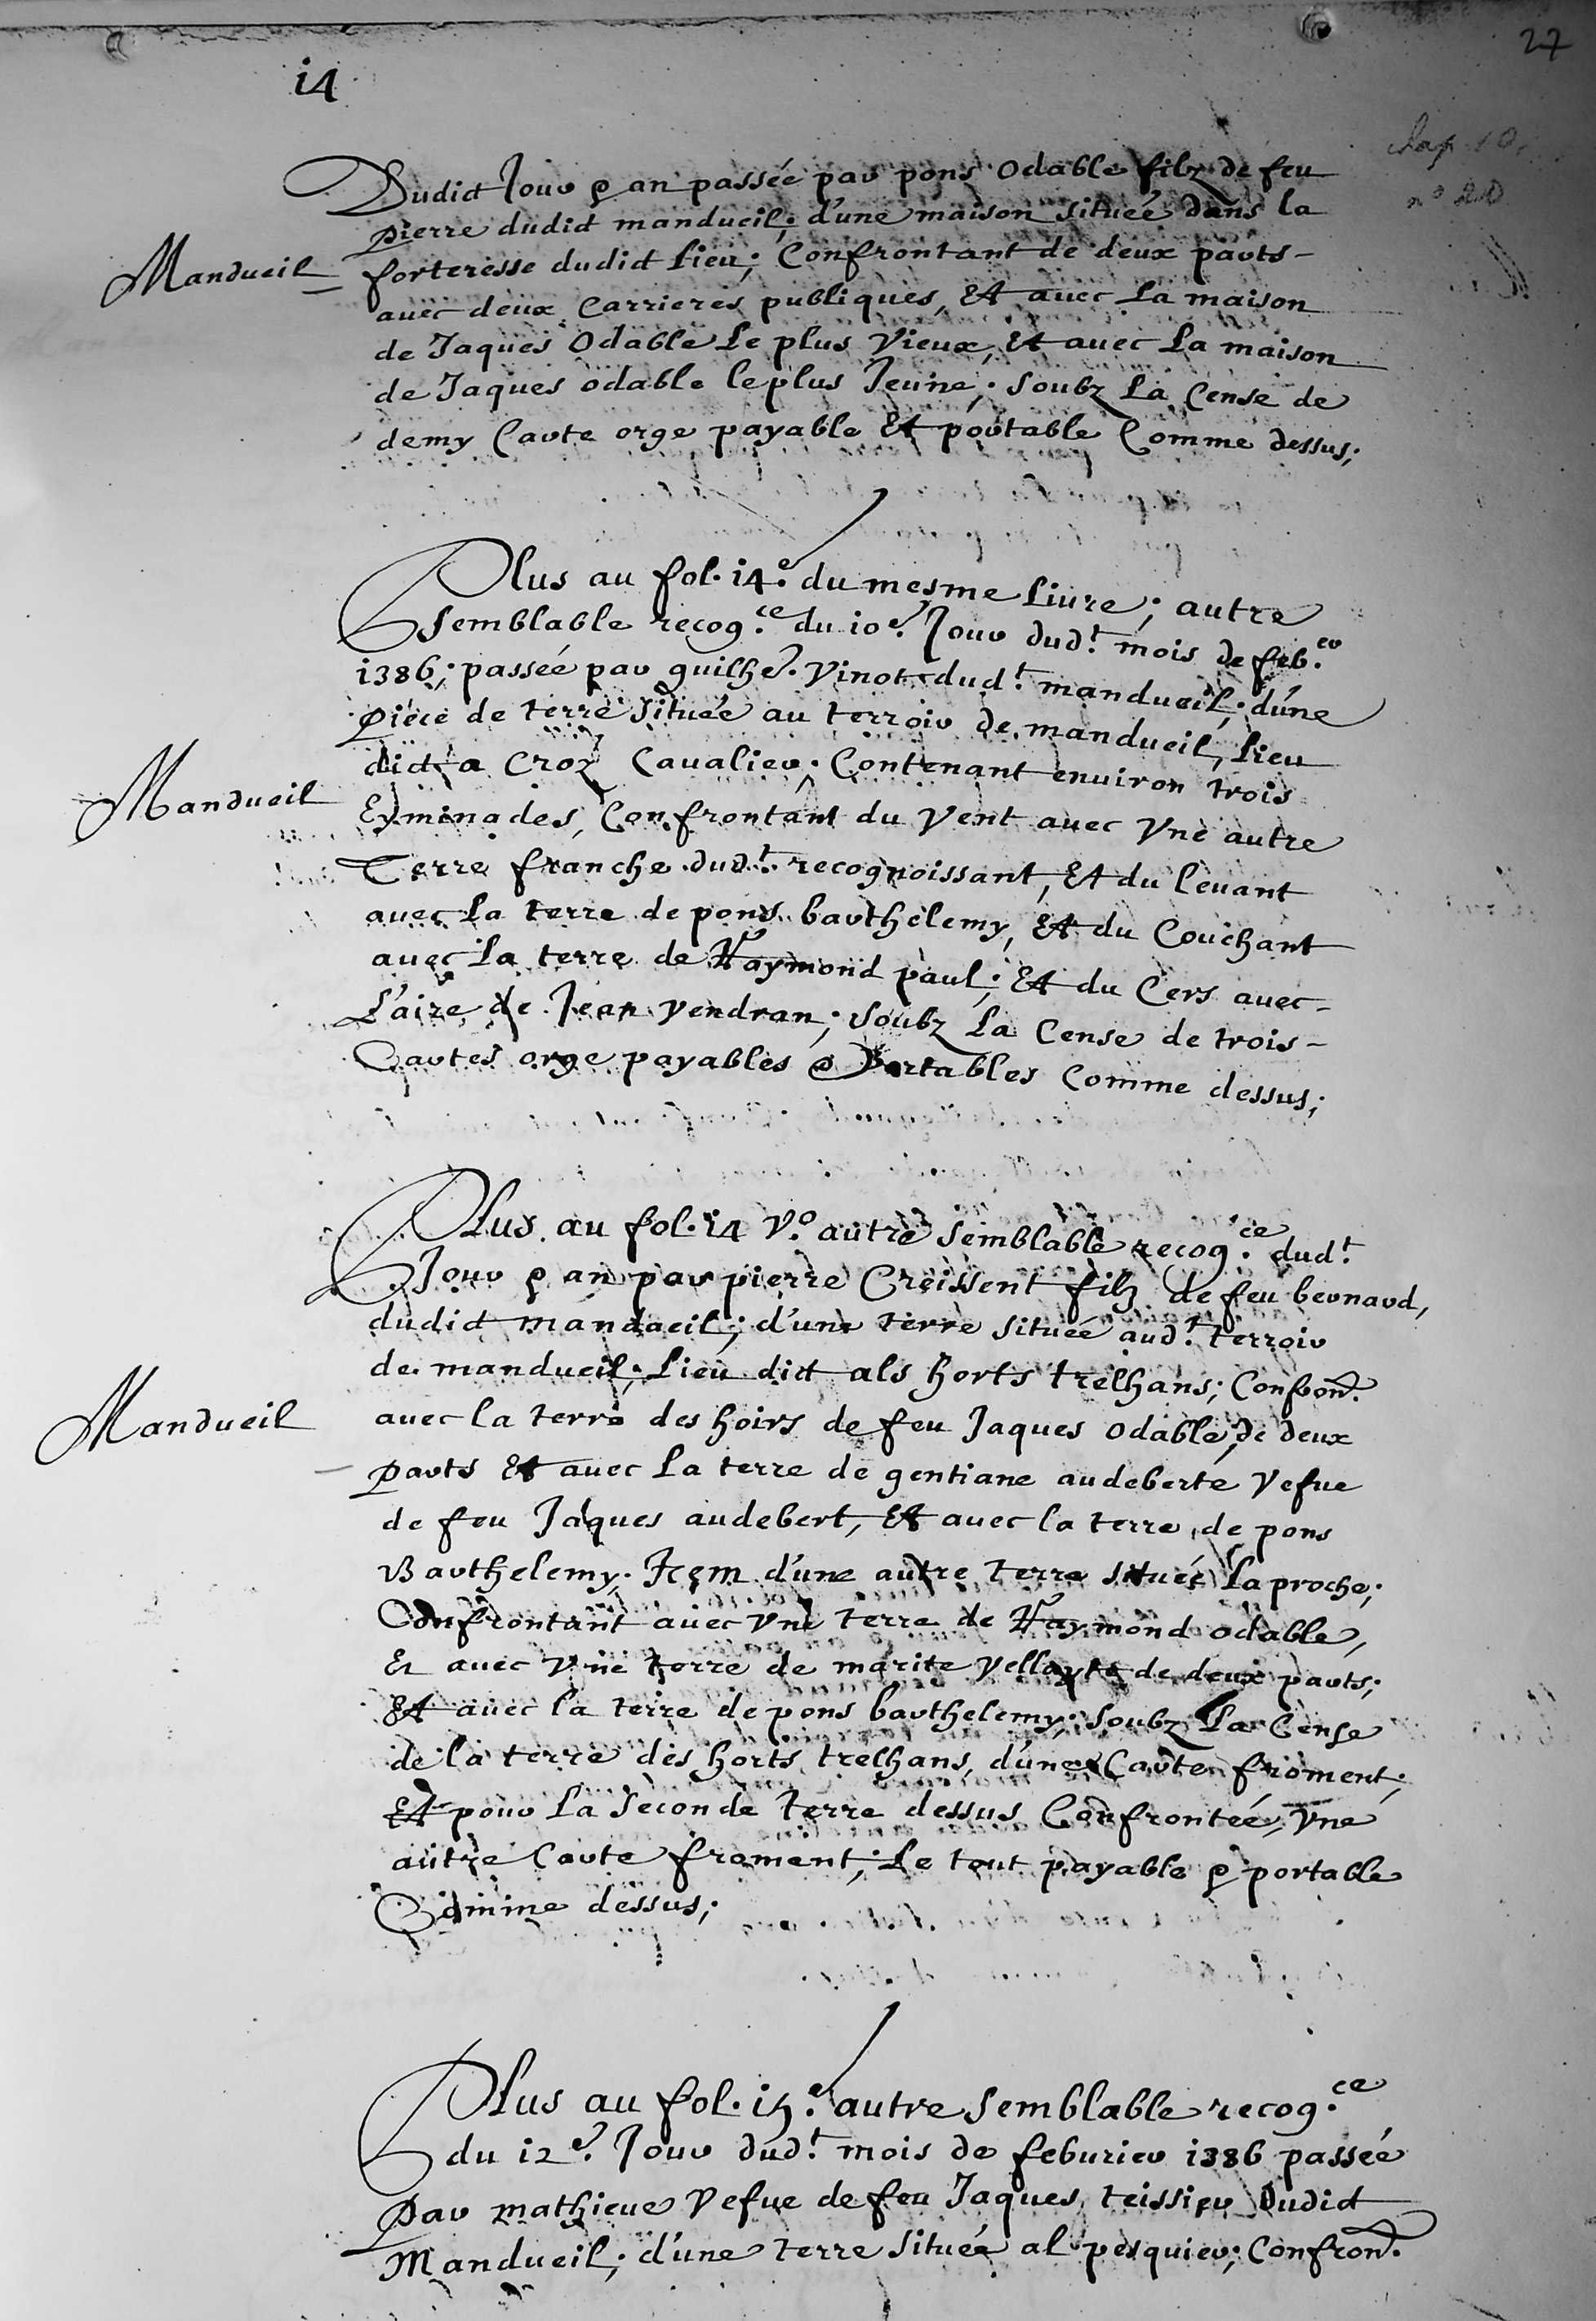 27
i4
chap. 10.
n° 20
Dudict Jour & an passée par pons odable filz de feu
pierre dudict mandueil; d'une maison située dans la
Mandueil
forteresse dudict Lieu; Confrontant de deux parts-
avec deux Carrieres publiques, Et avec La maison
de Jaques Odable Le plus Vieux, Et avec La maison
de Jaques odable le plus Jeune; soubz La Cense de
demy Carte orge payable Et portable Comme dessus;
Plus au fol. i4.e du mesme Livre; autre
semblable recog.ce du i0e. Jour dud.t mois de feb.er
i386; passée par guilhe. Vinot dud.t mandueil; d'une
piece de terre située au terroir de mandueil, Lieu
dict a Croz Cavalier; Contenant environ trois
Mandueil
Eyminades, Confrontant du Vent avec Vne autre
Terre franche dud.t recognoissant, Et du levant
avec La terre de pons barthelemy, Et du Couchant
avec La terre de Raymond paul; Et du Cers avec-
L'aire de Jean Vendran; soubz La Cense de trois-
Cartes orge payables & Portables Comme dessus;
Plus au fol. i4 V.o autre semblable recog.ce dud.t
Jour & an par pierre Creissent filz de feu bernard,
dudict mandueil; d'une terre située aud.t terroir
de mandueil; Lieu dict als horts trelhans; Confron.t
Mandueil
avec la terre des hoirs de feu Jaques odable, de deux
parts Et avec La terre de gentiane audeberte Vefue
de feu Jaques audebert, Et avec la terre de pons
Barthelemy; Item d'une autre terre située La proche;
Confrontant avec Vne terre de Raymond odable,
Et avec Vne terre de marite de deux parts;
Et avec la terre de pons barthelemy; soubz La Cense
de la terre des horts trelhans, d'une Carte froment;
Et pour La seconde terre dessus Confrontée, Vne
autre Carte froment; Le tout payable & portable
Comme dessus;
Plus au fol. i5.e autre semblable recog.ce
du i2e. Jour dud.t mois de feburier i386 passée
Par mathieue Vefue de feu Jaques teissier Dudict
Mandueil; d'une terre située al pesquier; Confron.t